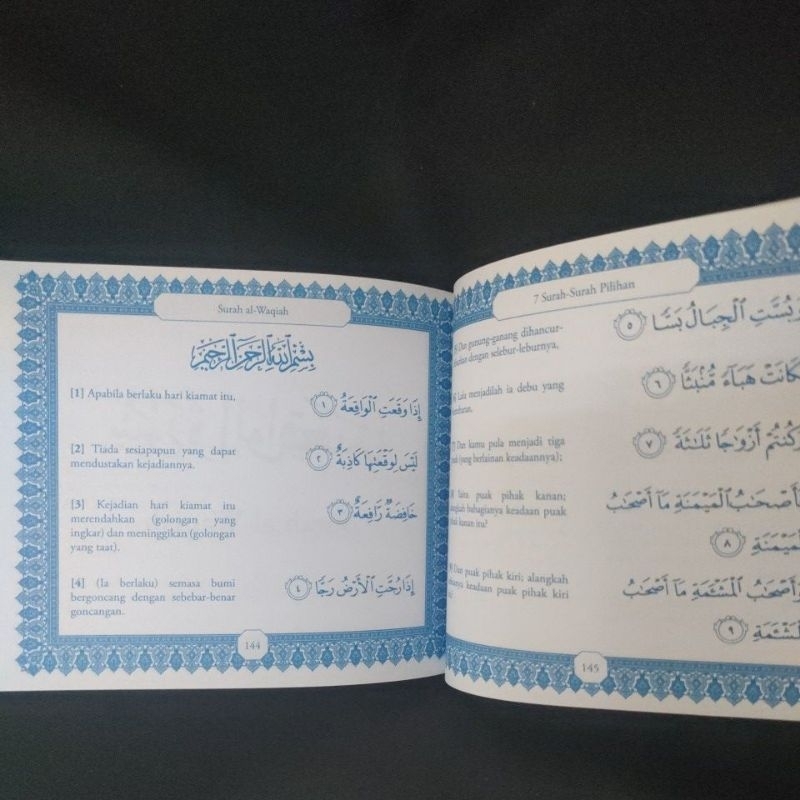 Surah al-Waqiah
بِسْمِ اللَّهِ الرَّحْمَٰنِ الرَّحِيمِ
[1] Apabila berlaku hari kiamat itu,
إِذَا وَقَعَتِ الْوَاقِعَةُ ١
[2] Tiada sesiapapun yang dapat
mendustakan kejadiannya.
لَيْسَ لِوَقْعَتِهَا كَاذِبَةٌ ٢
[3] Kejadian hari kiamat itu
merendahkan (golongan yang
ingkar) dan meninggikan (golongan
yang taat).
خَافِضَةٌ رَافِعَةٌ ٣
[4] (Ia berlaku) semasa bumi
bergoncang dengan sebebar-benar
goncangan.
إِذَا رُجَّتِ الْأَرْضُ رَجًّا ٤
144
7 Surah-Surah Pilihan
Dan gunung-ganang dihancur-
dengan selebur-leburnya,
وَبُسَّتِ الْجِبَالُ بَسًّا ٥
Lalu menjadilah ia debu yang
فَكَانَتْ هَبَاءً مُّنْبَثًّا ٦
Dan kamu pula menjadi tiga
puak (yang berlainan keadaannya);
وَكُنتُمْ أَزْوَاجًا ثَلَاثَةً ٧
Iaitu puak pihak kanan;
bahagianya keadaan puak
kanan itu?
فَأَصْحَابُ الْمَيْمَنَةِ مَا أَصْحَابُ
الْمَيْمَنَةِ ٨
Dan puak pihak kiri; alangkah
keadaan puak pihak kiri
وَأَصْحَابُ الْمَشْأَمَةِ مَا أَصْحَابُ
الْمَشْأَمَةِ ٩
145